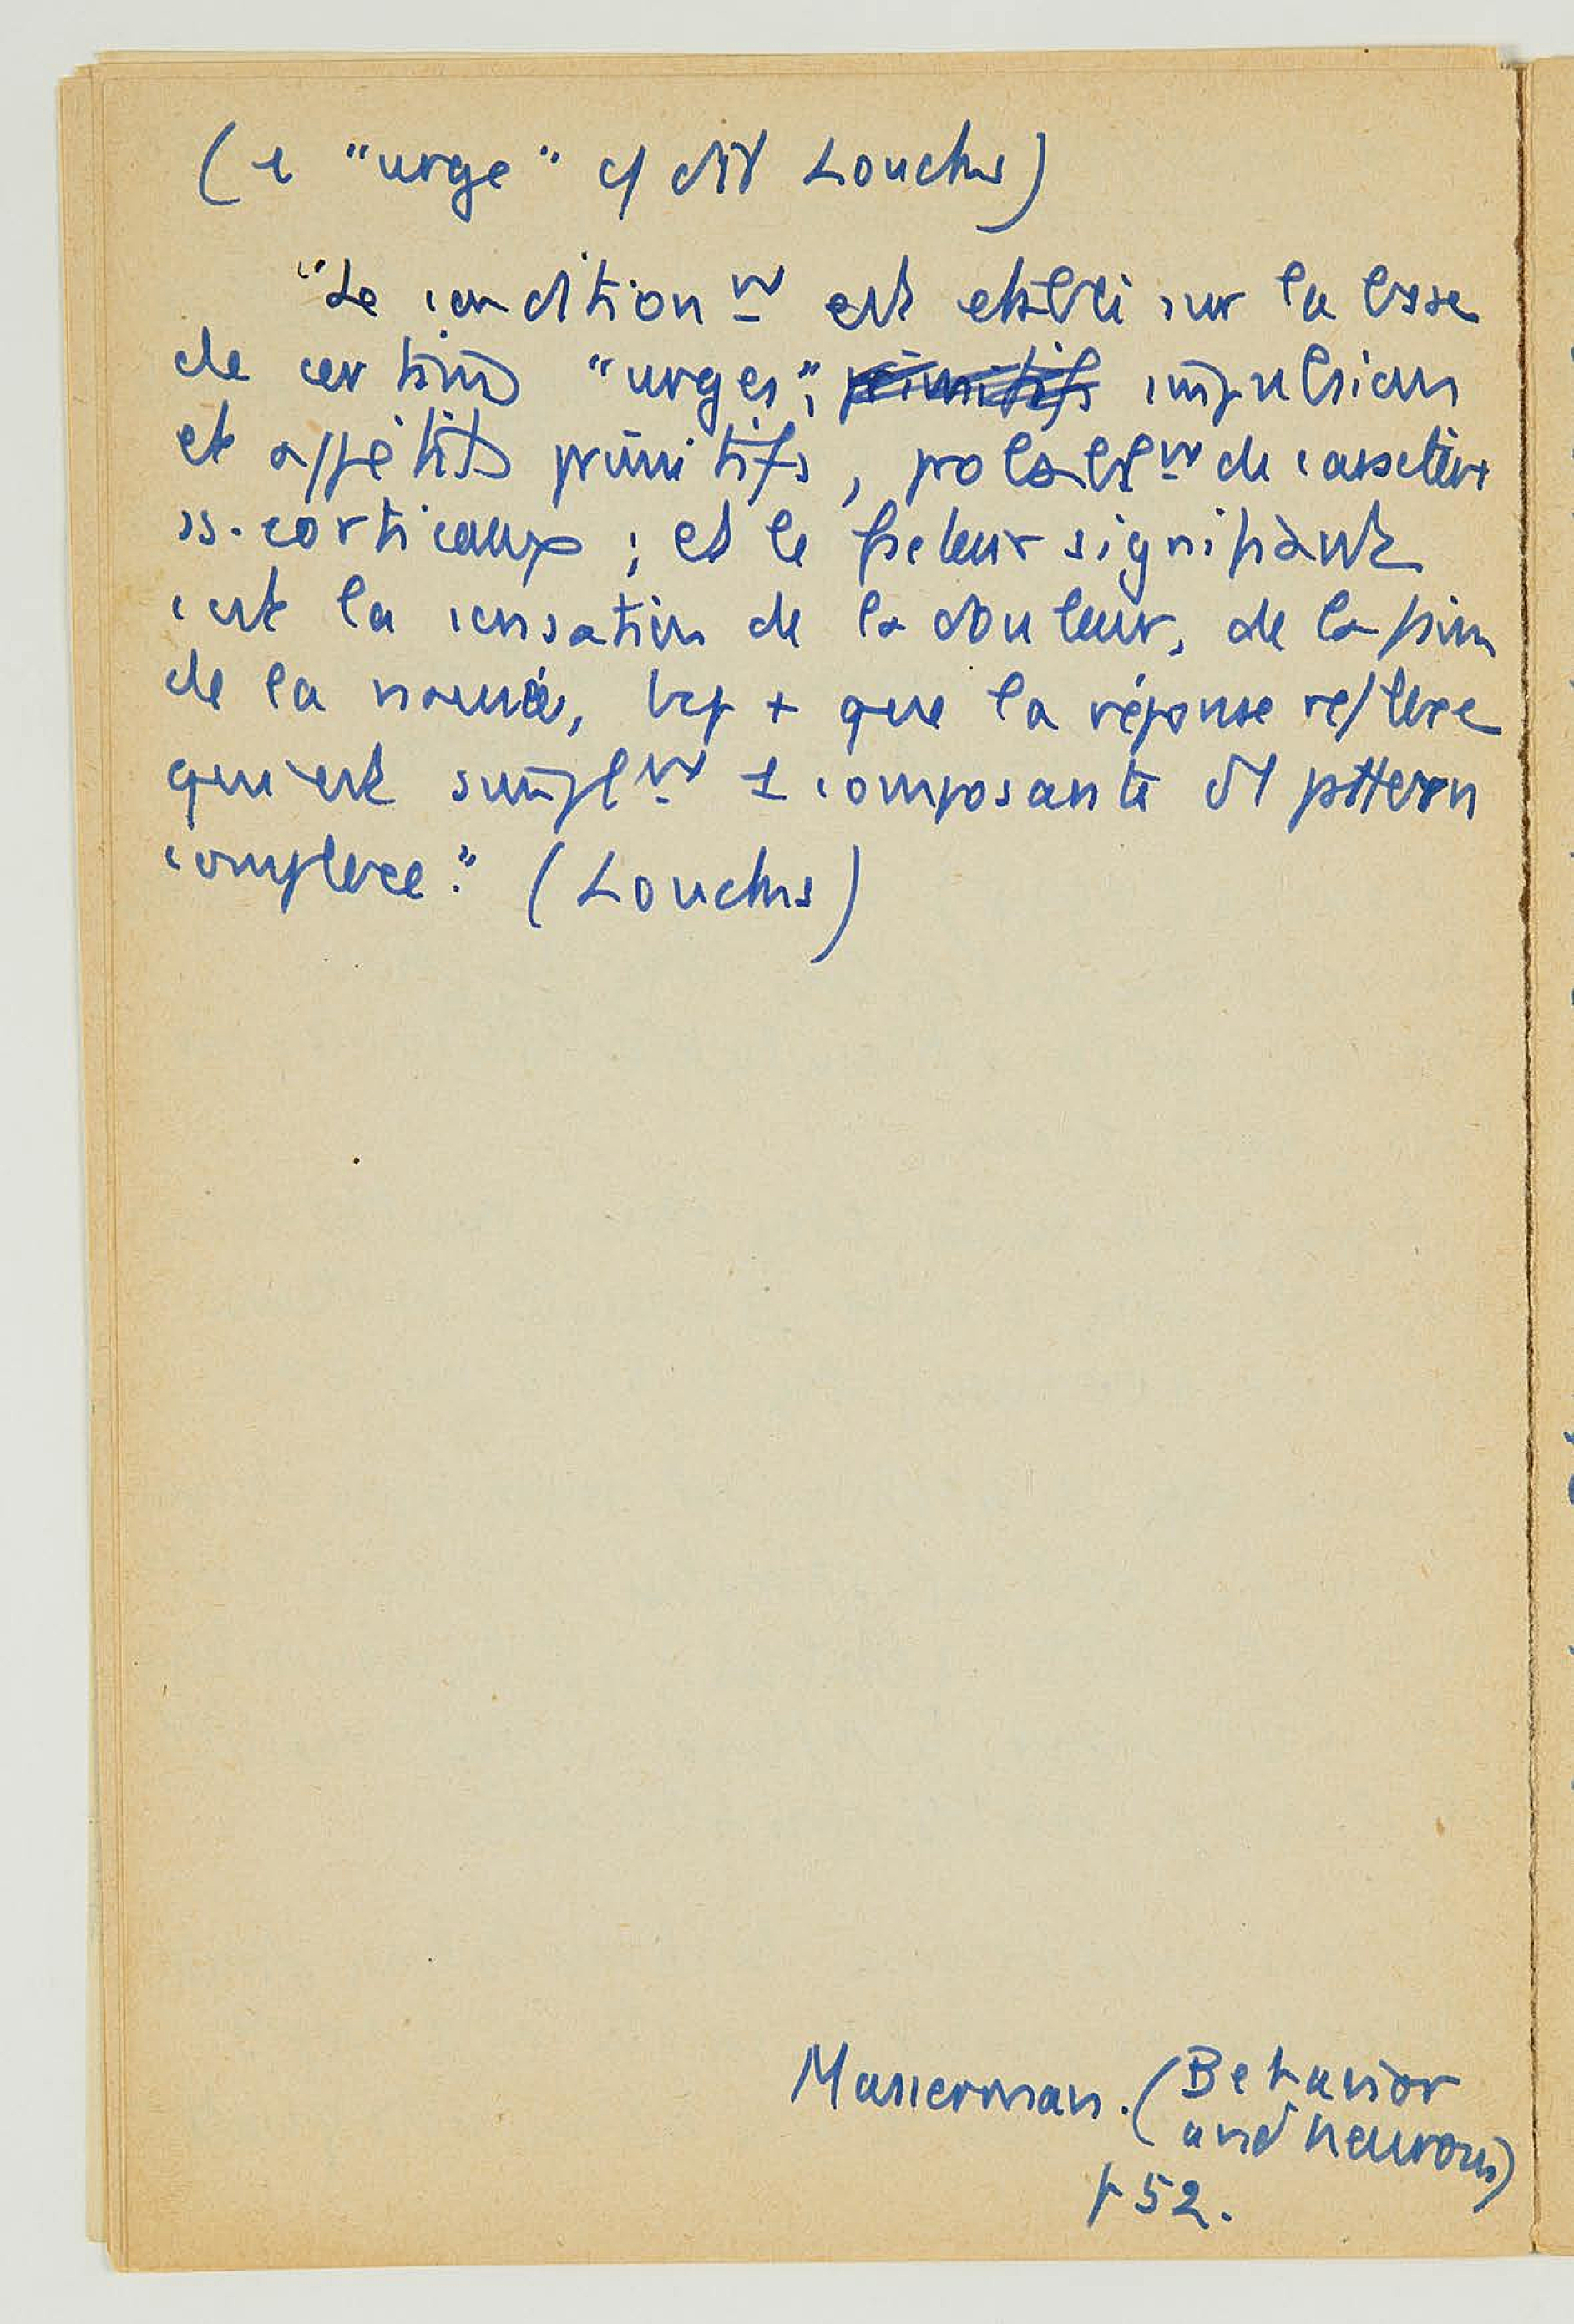 (1 "urge" c/ dit Loucks)
"Le condition^nt est établi sur la base
de certains "urges", primitifs impulsions
et appétits primitifs, probabl^nt de caractère
ss-corticaux ; et le facteur signifiant
c'est la sensation de la douleur, de la faim
de la nausée, bcp + que la réponse réflexe
qui est simpl^nt 1 composante d1 pattern
complexe." (Loucks)
Masserman. (Behavior
and neurosis)
p 52.